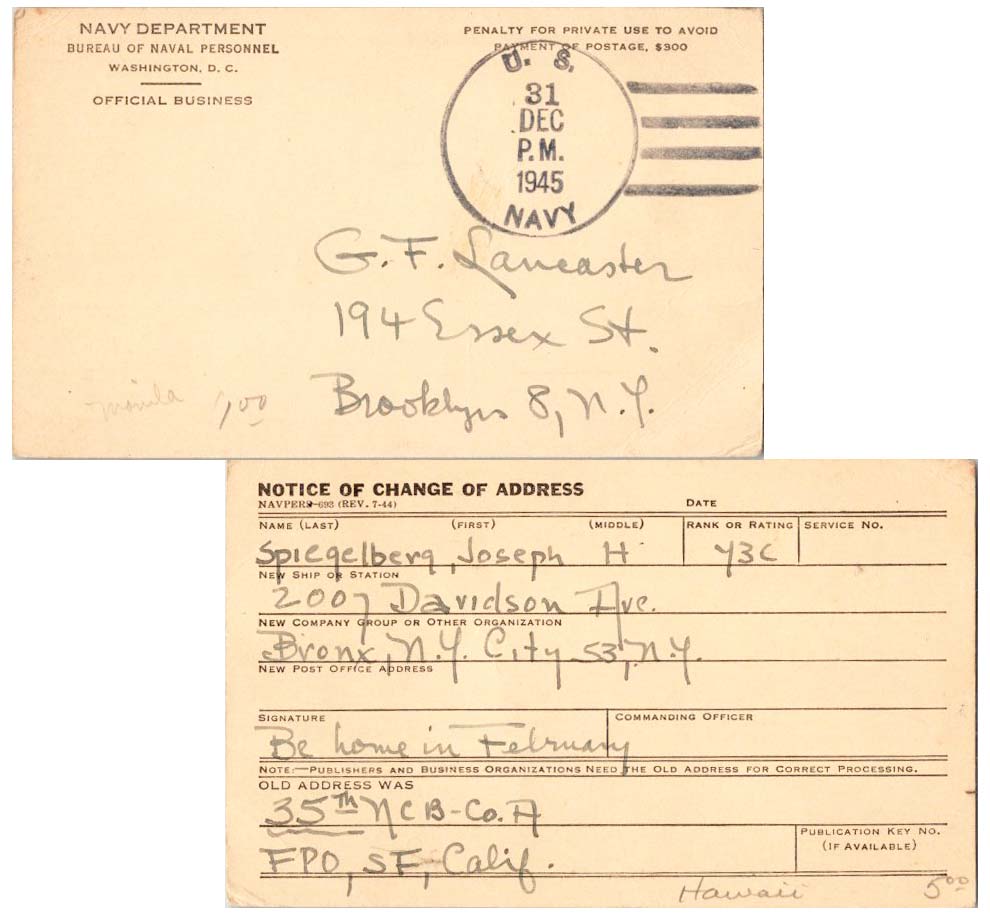 NAVY DEPARTMENT
BUREAU OF NAVAL PERSONNEL
WASHINGTON, D. C.
OFFICIAL BUSINESS
PENALTY FOR PRIVATE USE TO AVOID
PAYMENT OF POSTAGE, $300
U. S.
31
DEC
P.M.
1945
NAVY
G. F. Lancaster
194 Essex St.
Brooklyn 8, N.Y.
Manila 1.00
NOTICE OF CHANGE OF ADDRESS
NAVPERS-693 (REV. 7-44)
DATE
NAME (LAST) (FIRST) (MIDDLE) RANK OR RATING SERVICE NO.
Spiegelberg, Joseph H Y3C
NEW SHIP OR STATION
2007 Davidson Ave.
NEW COMPANY GROUP OR OTHER ORGANIZATION
Bronx, N.Y. City 53, N.Y.
NEW POST OFFICE ADDRESS
SIGNATURE COMMANDING OFFICER
Be home in February
NOTE:—PUBLISHERS AND BUSINESS ORGANIZATIONS NEED THE OLD ADDRESS FOR CORRECT PROCESSING.
OLD ADDRESS WAS
35th NCB-Co. A
PUBLICATION KEY NO.
(IF AVAILABLE)
FPO, SF, Calif.
Hawaii 5.00